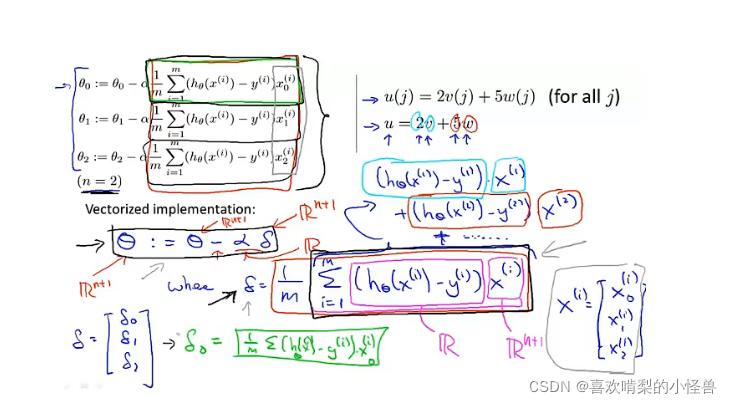 θ₀ := θ₀ − α 1/m ∑ᵢ₌₁ᵐ (h_θ(x⁽ⁱ⁾) − y⁽ⁱ⁾) x₀⁽ⁱ⁾
θ₁ := θ₁ − α 1/m ∑ᵢ₌₁ᵐ (h_θ(x⁽ⁱ⁾) − y⁽ⁱ⁾) x₁⁽ⁱ⁾
θ₂ := θ₂ − α 1/m ∑ᵢ₌₁ᵐ (h_θ(x⁽ⁱ⁾) − y⁽ⁱ⁾) x₂⁽ⁱ⁾
(n = 2)
→ u(j) = 2v(j) + 5w(j) (for all j)
→ u = 2v + 5w
(h_θ(x⁽¹⁾) − y⁽¹⁾) x⁽¹⁾
+ (h_θ(x⁽²⁾) − y⁽²⁾) x⁽²⁾
+ ......
Vectorized implementation:
ℝⁿ⁺¹ ℝⁿ⁺¹
→ θ := θ − α δ
ℝⁿ⁺¹ ℝ
where → δ = 1/m ∑ᵢ₌₁ᵐ (h_θ(x⁽ⁱ⁾) − y⁽ⁱ⁾) x⁽ⁱ⁾
ℝ ℝⁿ⁺¹
x⁽ⁱ⁾ = [x₀⁽ⁱ⁾ x₁⁽ⁱ⁾ x₂⁽ⁱ⁾]
δ = [δ₀ δ₁ δ₂] → δ₀ = 1/m ∑ (h_θ(x⁽ⁱ⁾) − y⁽ⁱ⁾) x₀⁽ⁱ⁾
CSDN @喜欢啃梨的小怪兽